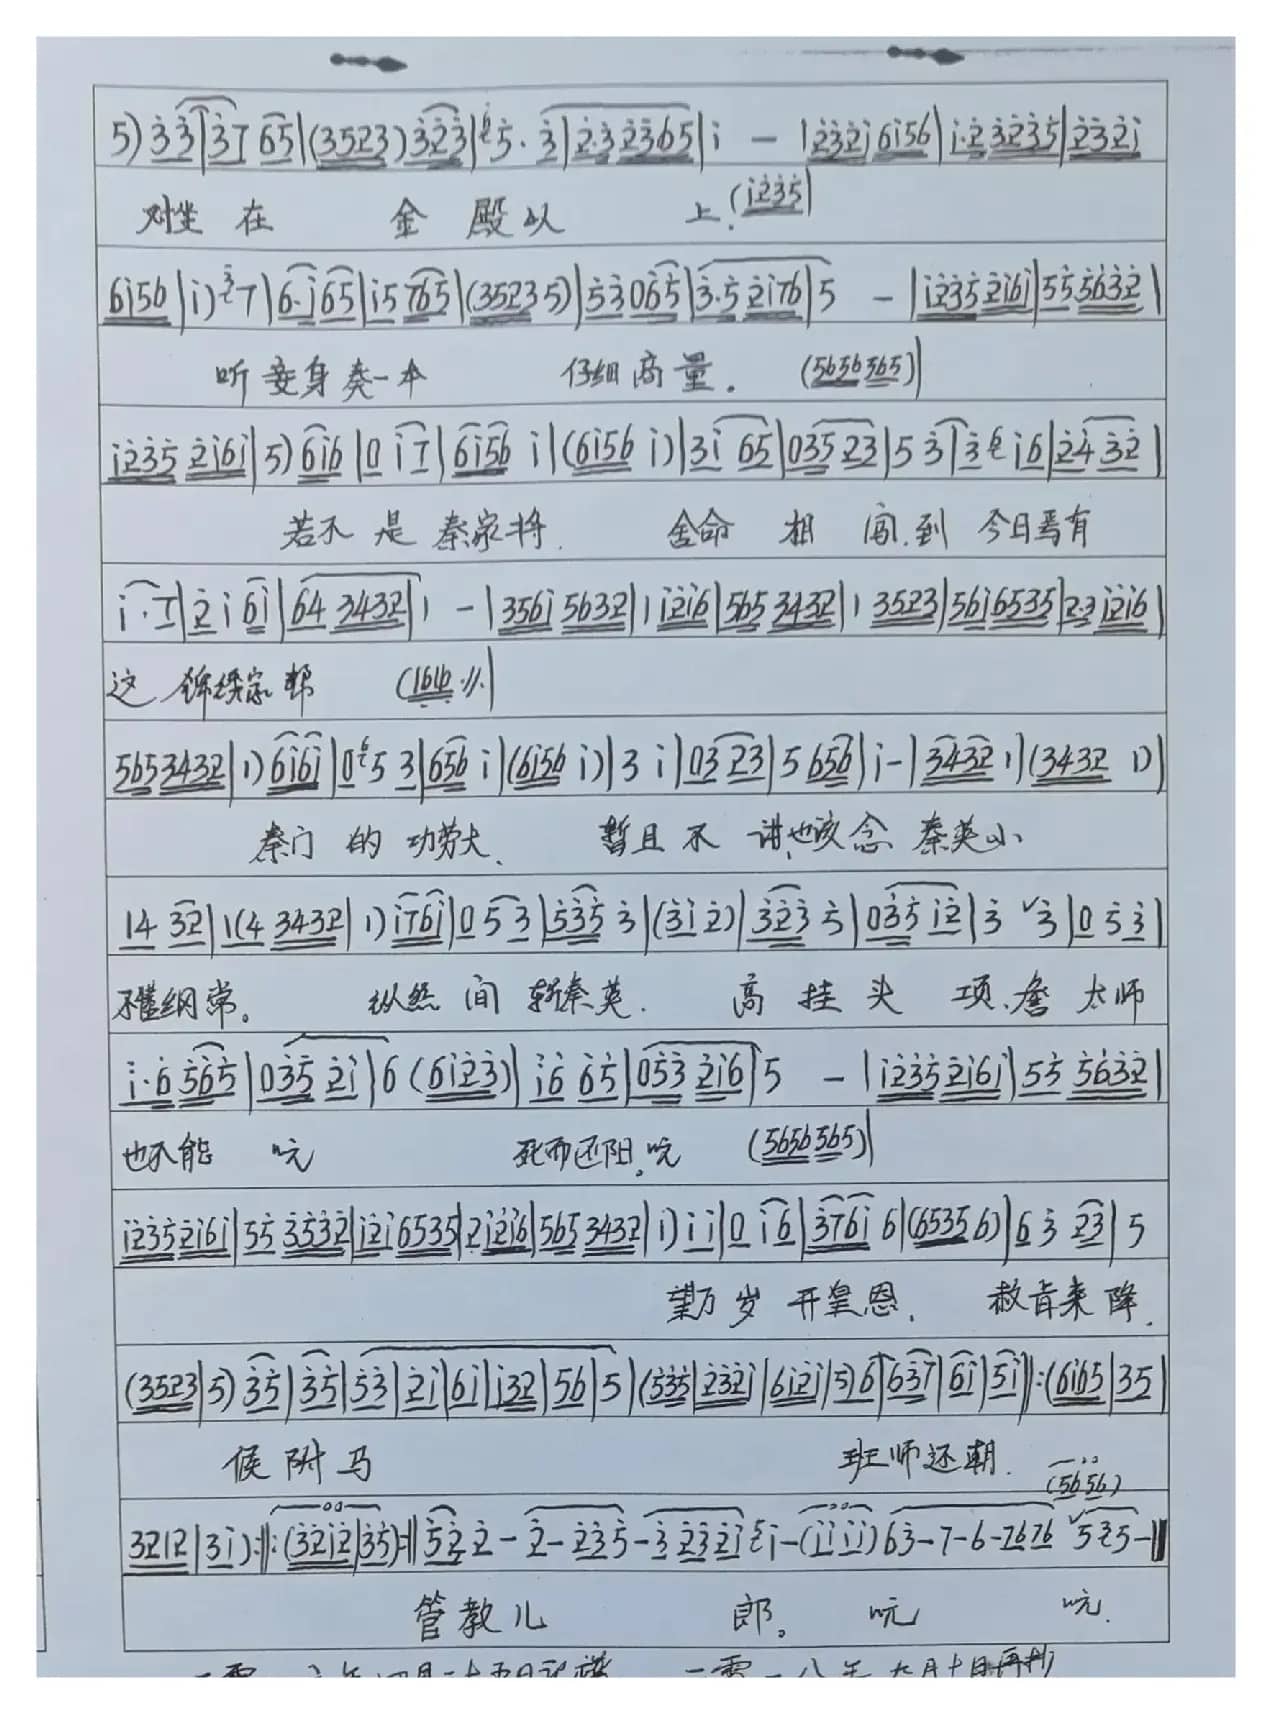 5) 3̇3̇|3̇7 65|(3523) 3̇2̇3̇|5̇·3̇|2̇·3̇ 2̇3̇65|i̇ — |2̇3̇2̇i̇ 6i̇56|i̇·2̇ 3̇2̇3̇5̇|2̇3̇2̇i̇
对坐在 金殿以 上.(i̇2̇3̇5̇|
6i̇56|i̇) 7|6·i̇ 65|i̇5 765|(3523 5)|5̇3̇ 065|3̇·5̇ 2̇i̇76|5 — |i̇2̇3̇5̇ 2̇i̇6i̇|5̇5̇ 5̇6̇3̇2̇|
听妾身奏一本 仔细商量. (5656 565)|
i̇2̇3̇5̇ 2̇i̇6i̇|5) 6i̇6|0 i̇7|6i̇56 i̇|(6i̇56 i̇)|3i̇ 65|035 23|5 3̇|3̇ i̇6|2̇4̇ 3̇2̇|
若不是秦家将. 舍命相闯.到今日焉有
i̇·7|2̇ i̇ 6i̇|64 3432|1 — |356i̇ 5632|1 i̇2̇i̇6|565 3432|1 3523|56i̇6535|2·3 i̇2̇i̇6|
这锦绣家邦 (1616·//.|
565 3432|1) 6i̇6i̇|0 5 3|656 i̇|(6i̇56 i̇)|3 i̇|03 23|5 656|i̇ — |3432 1|(3432 1)|
秦门的功劳大. 暂且不讲.也该念秦英小
14 32|1(4 3432|1) i̇76i̇|0 5̇ 3̇|5̇3̇5̇ 3̇|(3̇i̇ 2̇)|3̇2̇3̇ 5̇|03̇5̇ i̇2̇|3̇ ˅3̇|0 5̇ 3̇|
不懂纲常。 纵然间斩秦英. 高挂头项.詹太师
i̇·6 5̇6̇5̇|03̇5̇ 2̇i̇|6 (6i̇2̇3̇)|i̇6 65|05̇3̇ 2̇i̇6|5 — |i̇2̇3̇5̇ 2̇i̇6i̇|5̇5̇ 5̇6̇3̇2̇|
也不能 吭 死而还阳。吭 (5656 565)|
i̇2̇3̇5̇ 2̇i̇6i̇|5̇5̇ 3̇5̇3̇2̇|i̇2̇i̇ 6535|2 i̇2̇i̇6|565 3432|1) i̇ i̇|0 i̇6|3̇76i̇ 6|(6535 6)|6 3̇ 2̇3̇|5
望万岁开皇恩. 赦旨来降.
(3523|5) 3̇5̇|3̇5̇|5̇3̇|2̇i̇|6i̇|i̇32|56|5|(5̇3̇5̇|2̇3̇2̇i̇|6i̇2̇i̇|5) 6|63̇7|6i̇|5i̇‖:(6i̇65|35|
候附马 班师还朝. (56 56)
3212|3i̇):‖:(3̇2̇i̇2̇|3̇5̇):‖5̇2̇ 2̇ — 2̇ — 2̇3̇5̇ — 3̇ 2̇3̇2̇i̇ i̇ — (i̇i̇ i̇i̇) 63̇ — 7 — 6 — 7676 ˅5 5 — ‖
管教儿 郎。 吭 吭.